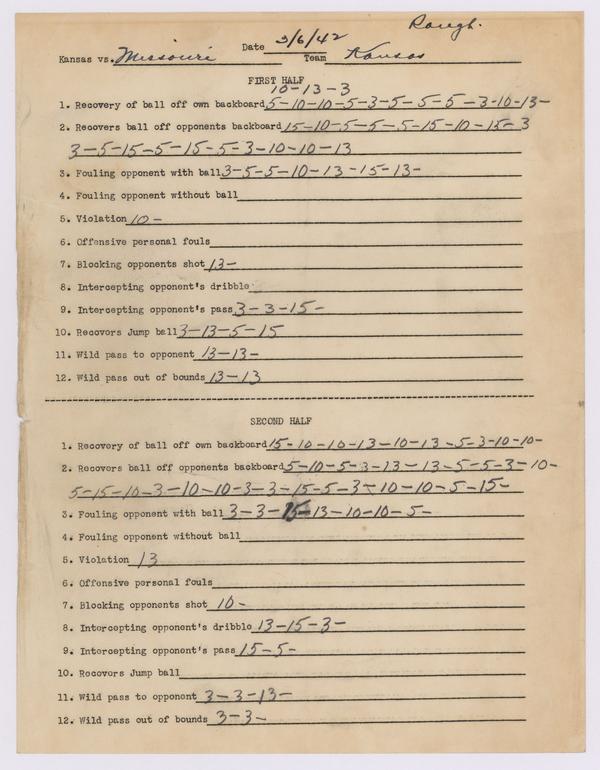 Rough.
Kansas vs. Missouri Date 3/6/42 Team Kansas
FIRST HALF
10-13-3
1. Recovery of ball off own backboard 5-10-10-5-3-5-5-5-3-10-13-
2. Recovers ball off opponents backboard 15-10-5-5-5-15-10-15-3
3-5-15-5-15-5-3-10-10-13
3. Fouling opponent with ball 3-5-5-10-13-15-13-
4. Fouling opponent without ball
5. Violation 10-
6. Offensive personal fouls
7. Blocking opponents shot 13-
8. Intercepting opponent's dribble
9. Intercepting opponent's pass 3-3-15-
10. Recovers Jump ball 3-13-5-15
11. Wild pass to opponent 13-13-
12. Wild pass out of bounds 13-13
SECOND HALF
1. Recovery of ball off own backboard 15-10-10-13-10-13-5-3-10-10-
2. Recovers ball off opponents backboard 5-10-5-3-13-13-5-5-3-10-
5-15-10-3-10-10-3-3-15-5-3-10-10-5-15-
3. Fouling opponent with ball 3-3-15-13-10-10-5-
4. Fouling opponent without ball
5. Violation 13
6. Offensive personal fouls
7. Blocking opponents shot 10-
8. Intercepting opponent's dribble 13-15-3-
9. Intercepting opponent's pass 15-5-
10. Recovers Jump ball
11. Wild pass to opponent 3-3-13-
12. Wild pass out of bounds 3-3-